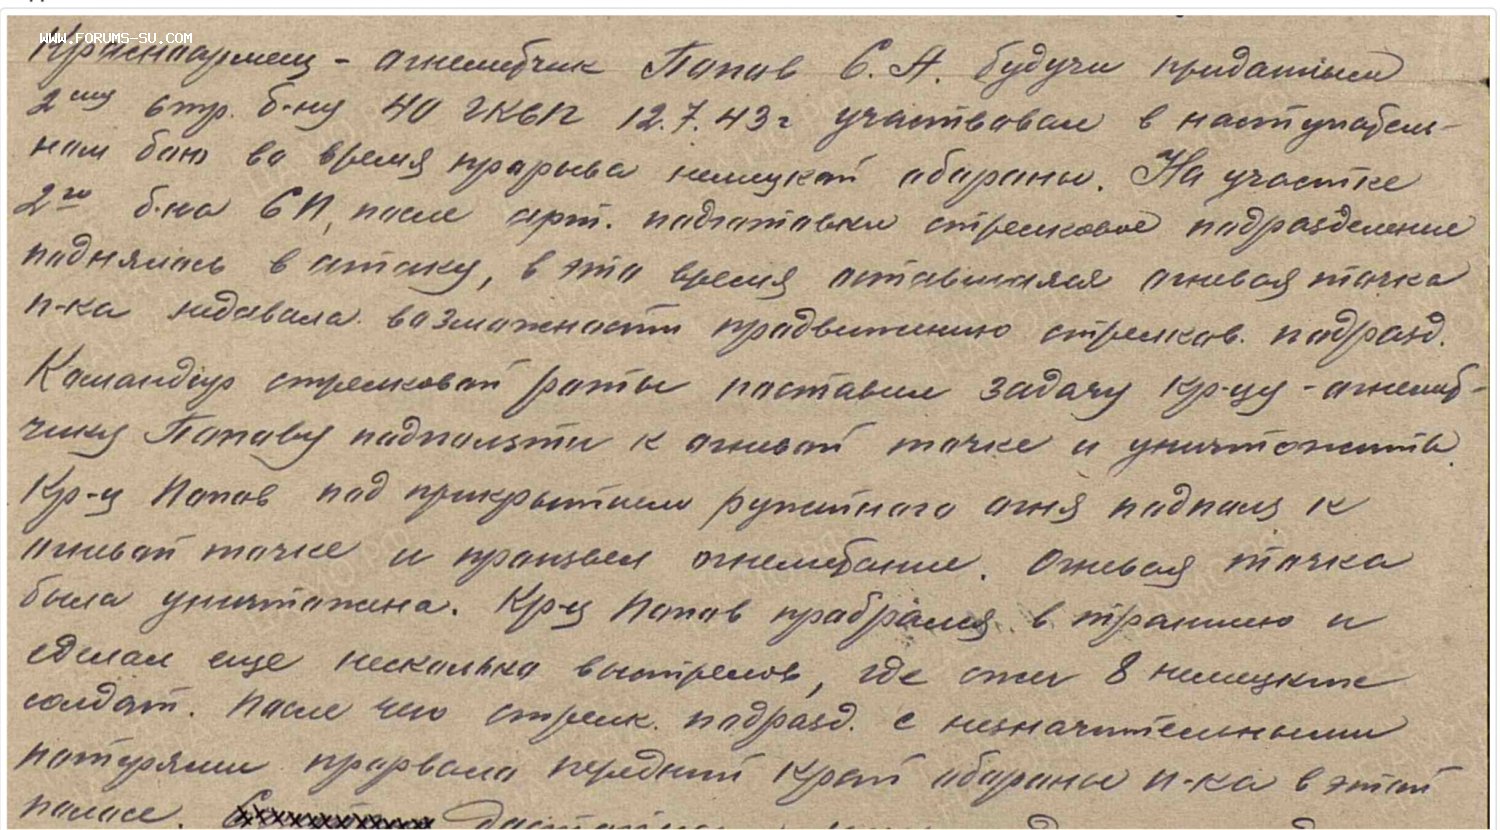 WWW.FORUMS-SU.COM
Красноармеец - огнеметчик Попов С. А. будучи приданным
2му стр. б-ну 40 гвсп 12.7.43г участвовал в наступатель-
ном бою во время прорыва немецкой обороны. На участке
2го б-на СП, после арт. подготовки стрелковое подразделение
поднялось в атаку, в это время оставшаяся огневая точка
п-ка недавала возможности продвижению стрелков. подразд.
Командир стрелковой роты поставил задачу кр-цу - огнемет-
чику Попову подползти к огневой точке и уничтожить.
Кр-ц Попов под прикрытием ружейного огня подполз к
огневой точке и произвел огнеметание. Огневая точка
была уничтожена. Кр-ц Попов пробрался в траншею и
сделал еще несколько выстрелов, где сжег 8 немецких
солдат. После чего стрелк. подразд. с незначительными
потерями прорвало передний край обороны п-ка в этой
полосе.